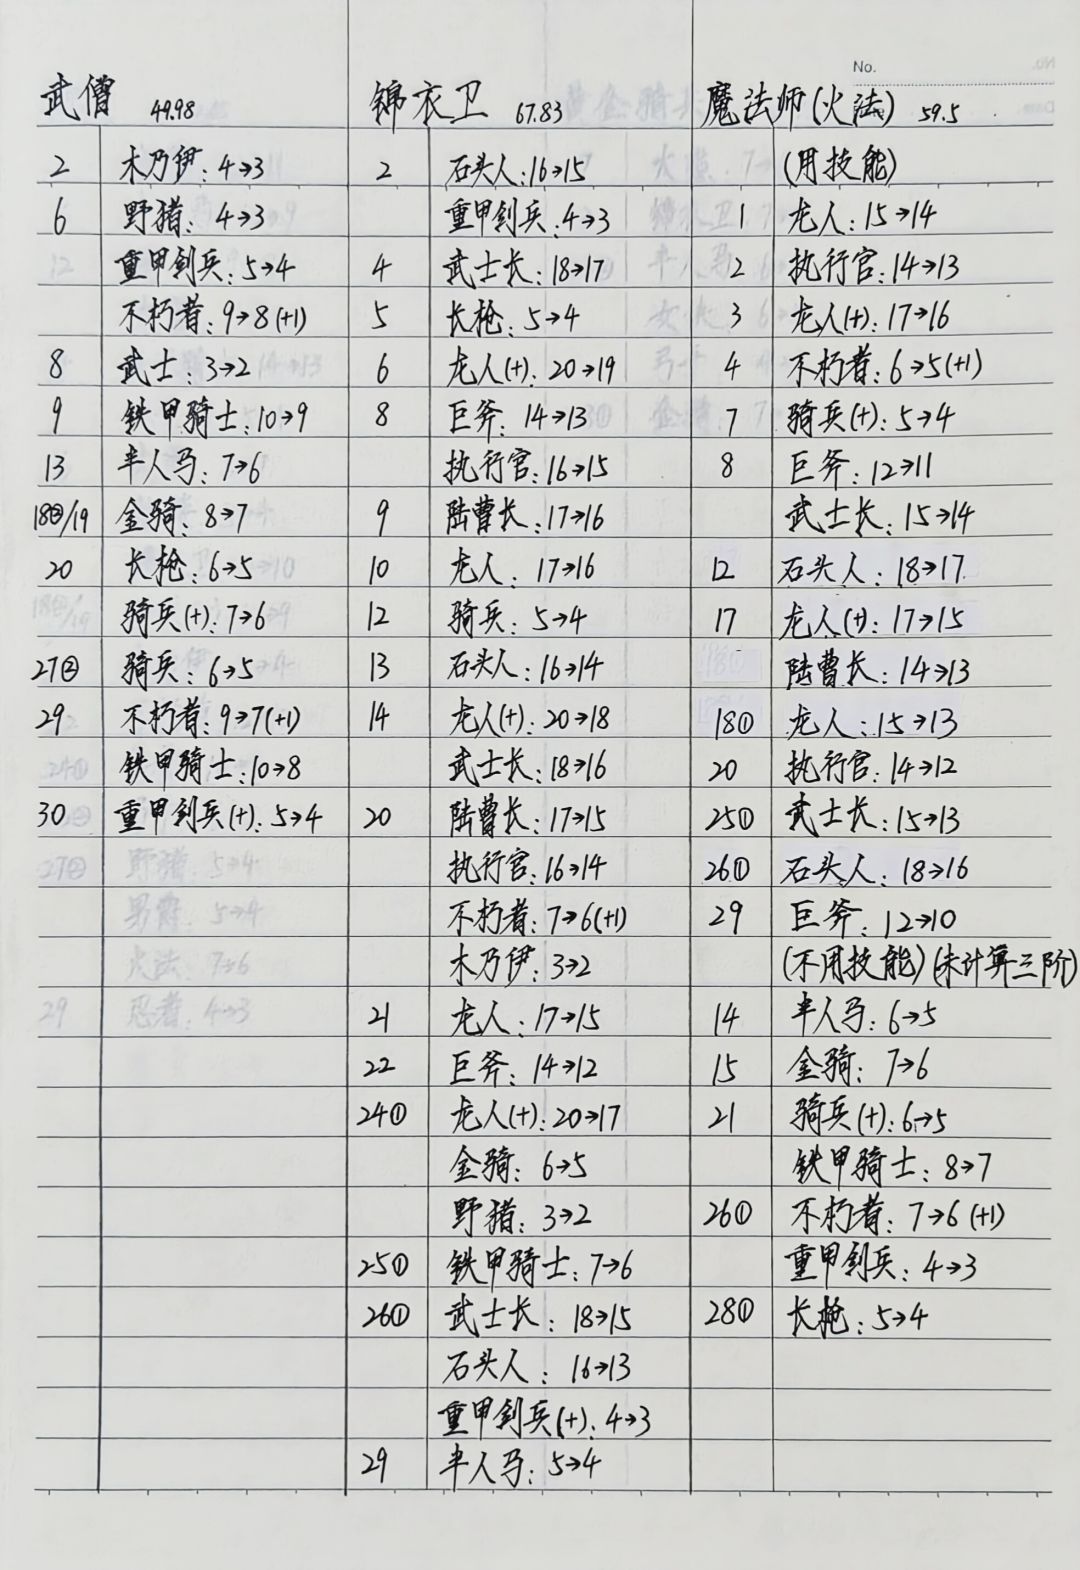 No.
武僧 49.98
2 木乃伊：4→3
6 野猪：4→3
重甲剑兵：5→4
不朽者：9→8(+1)
8 武士：3→2
9 铁甲骑士：10→9
13 半人马：7→6
18②/19 金骑：8→7
20 长枪：6→5
骑兵(+)：7→6
27② 骑兵：6→5
29 不朽者：9→7(+1)
铁甲骑士：10→8
30 重甲剑兵(+)：5→4
27② 野猪：5→4
男爵：5→4
火法：7→6
29 忍者：4→3
锦衣卫 67.83
2 石头人：16→15
重甲剑兵：4→3
4 武士长：18→17
5 长枪：5→4
6 龙人(+)：20→19
8 巨斧：14→13
执行官：16→15
9 陆曹长：17→16
10 龙人：17→16
12 骑兵：5→4
13 石头人：16→14
14 龙人(+)：20→18
武士长：18→16
20 陆曹长：17→15
执行官：16→14
不朽者：7→6(+1)
木乃伊：3→2
21 龙人：17→15
22 巨斧：14→12
24① 龙人(+)：20→17
金骑：6→5
野猪：3→2
25① 铁甲骑士：7→6
26① 武士长：18→15
石头人：16→13
重甲剑兵(+)：4→3
29 半人马：5→4
魔法师(火法) 59.5
(用技能)
1 龙人：15→14
2 执行官：14→13
3 龙人(+)：17→16
4 不朽者：6→5(+1)
7 骑兵(+)：5→4
8 巨斧：12→11
武士长：15→14
12 石头人：18→17
17 龙人(+)：17→15
陆曹长：14→13
18① 龙人：15→13
20 执行官：14→12
25① 武士长：15→13
26① 石头人：18→16
29 巨斧：12→10
(不用技能)(未计算三阶)
14 半人马：6→5
15 金骑：7→6
21 骑兵(+)：6→5
铁甲骑士：8→7
26① 不朽者：7→6(+1)
重甲剑兵：4→3
28① 长枪：5→4